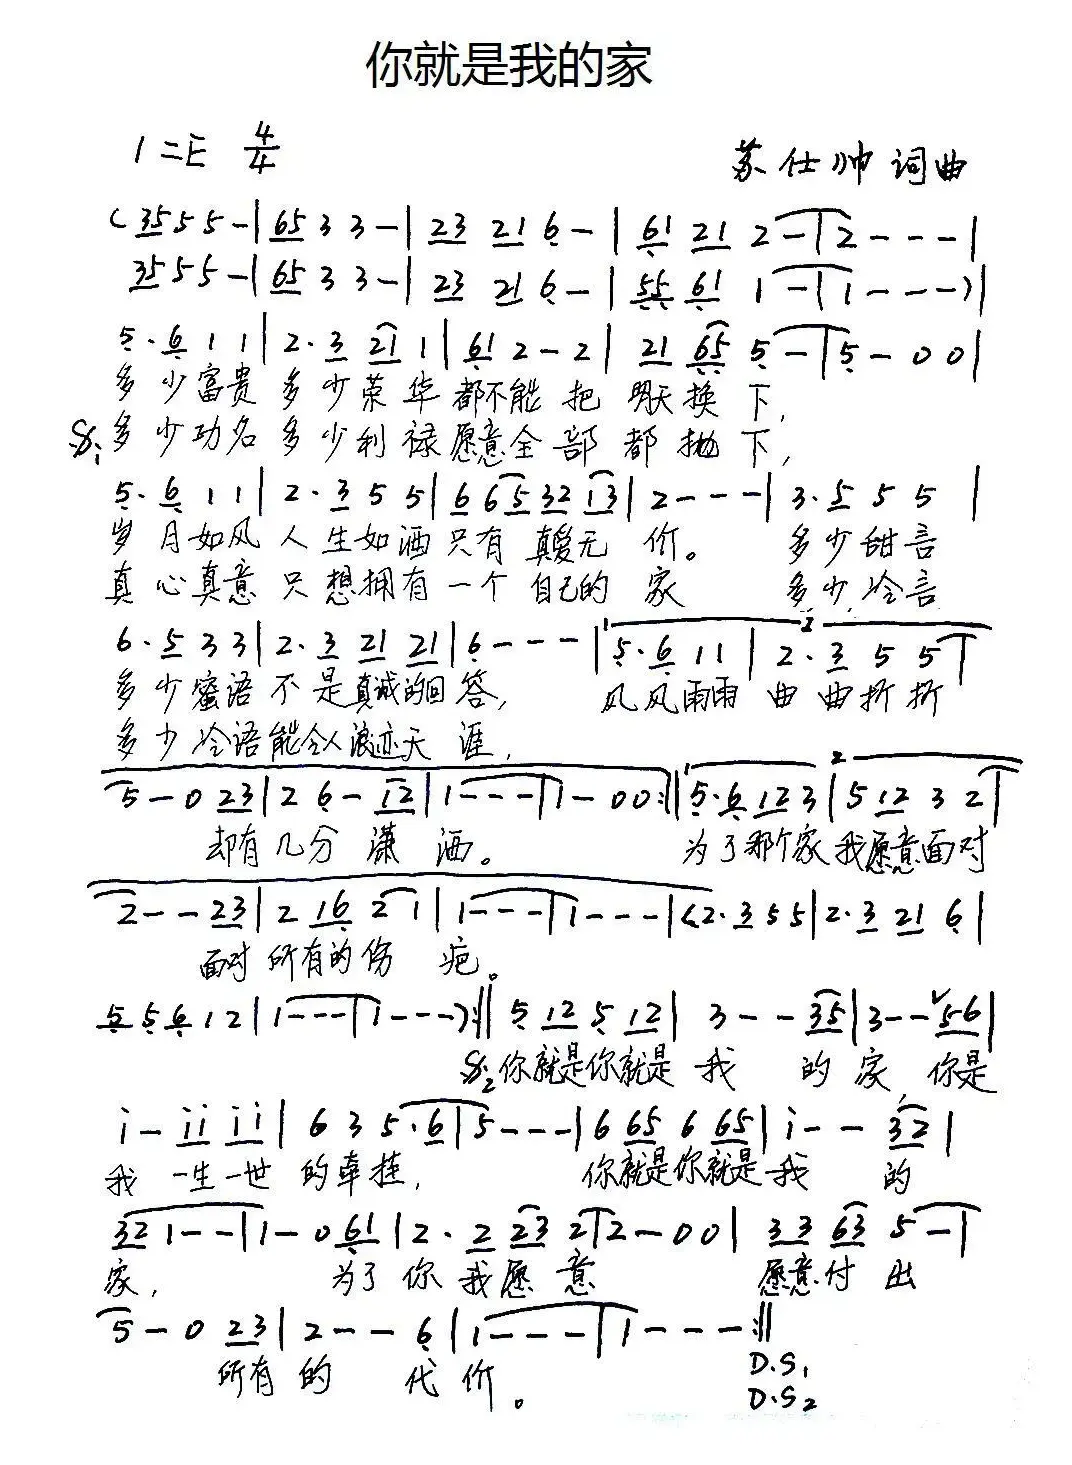 你就是我的家
1=E 4/4 苏仕帅词曲
(35 5 5 - | 65 3 3 - | 23 21 6 - | 61 21 2 - | 2 - - - |
35 5 5 - | 65 3 3 - | 23 21 6 - | 55 61 1 - | 1 - - -) |
5. 6 1 1 | 2. 3 21 1 | 61 2 - 2 | 21 65 5 - | 5 - 0 0 |
多少富贵 多少荣华都不能把 明天换下,
S1 多少功名 多少利禄愿意全部都抛下,
5. 6 1 1 | 2. 3 5 5 | 6 65 32 13 | 2 - - - | 3. 5 5 5 |
岁月如风 人生如洒只有真爱无价。 多少甜言
真心真意 只想拥有一个自己的家 多少冷言
6. 5 3 3 | 2. 3 21 21 | 6 - - - | 1 5. 6 1 1 | 2. 3 5 5 |
多少蜜语 不是真诚的回答, 风风雨雨 曲曲折折
多少冷语能令人浪迹天涯,
5 - 0 23 | 2 6 - 12 | 1 - - - | 1 - 0 0 :|| 5. 6 12 3 | 2 5 12 3 2 |
却有几分潇洒。 为了那个家我愿意面对
2 - - 23 | 2 16 2 1 | 1 - - - | 1 - - - | (2. 3 5 5 | 2. 3 21 6 |
面对所有的伤疤。
5 5 6 1 2 | 1 - - - | 1 - - -) :|| 5 12 5 12 | 3 - - 35 | 3 - - 56 |
S2 你就是你就是我 的家, 你是
i - ii ii | 6 3 5. 6 | 5 - - - | 6 65 6 65 | i - - 32 |
我一生一世的牵挂, 你就是你就是我 的
32 1 - - | 1 - 0 61 | 2. 2 23 2 | 2 - 0 0 | 33 63 5 - |
家, 为了你我愿意 愿意付出
5 - 0 23 | 2 - - 6 | 1 - - - | 1 - - - :||
所有的 代价。
D.S1
D.S2